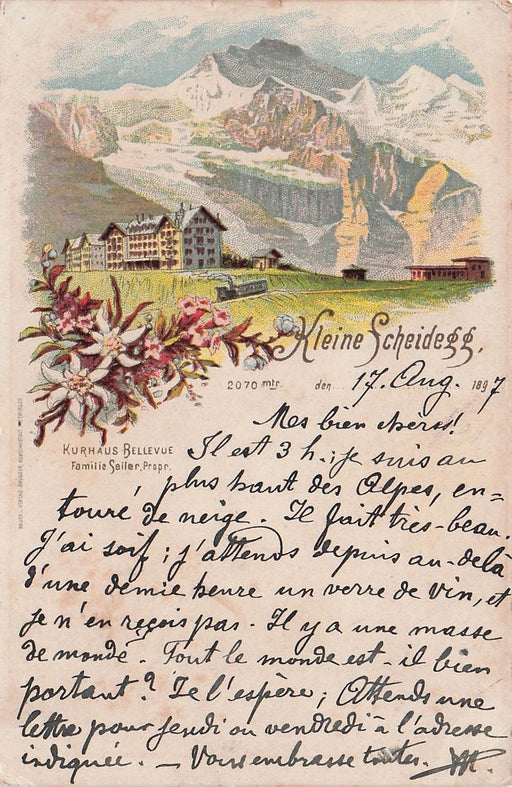 Kleine Scheidegg.
2070 mtr. den 17. Aug. 1897
KURHAUS BELLEVUE
Familie Seiler, Propr.
Mes bien chers!
Il est 3 h.; je suis au
plus haut des Alpes, en=
touré de neige. Il fait très-beau.
J'ai soif; j'attends depuis au-delà
d'une demie heure un verre de vin, et
je n'en reçois pas. Il y a une masse
de monde. Tout le monde est-il bien
portant? Je l'espère; Attends une
lettre pour jeudi ou vendredi à l'adresse
indiquée. — Vous embrasse toutes.